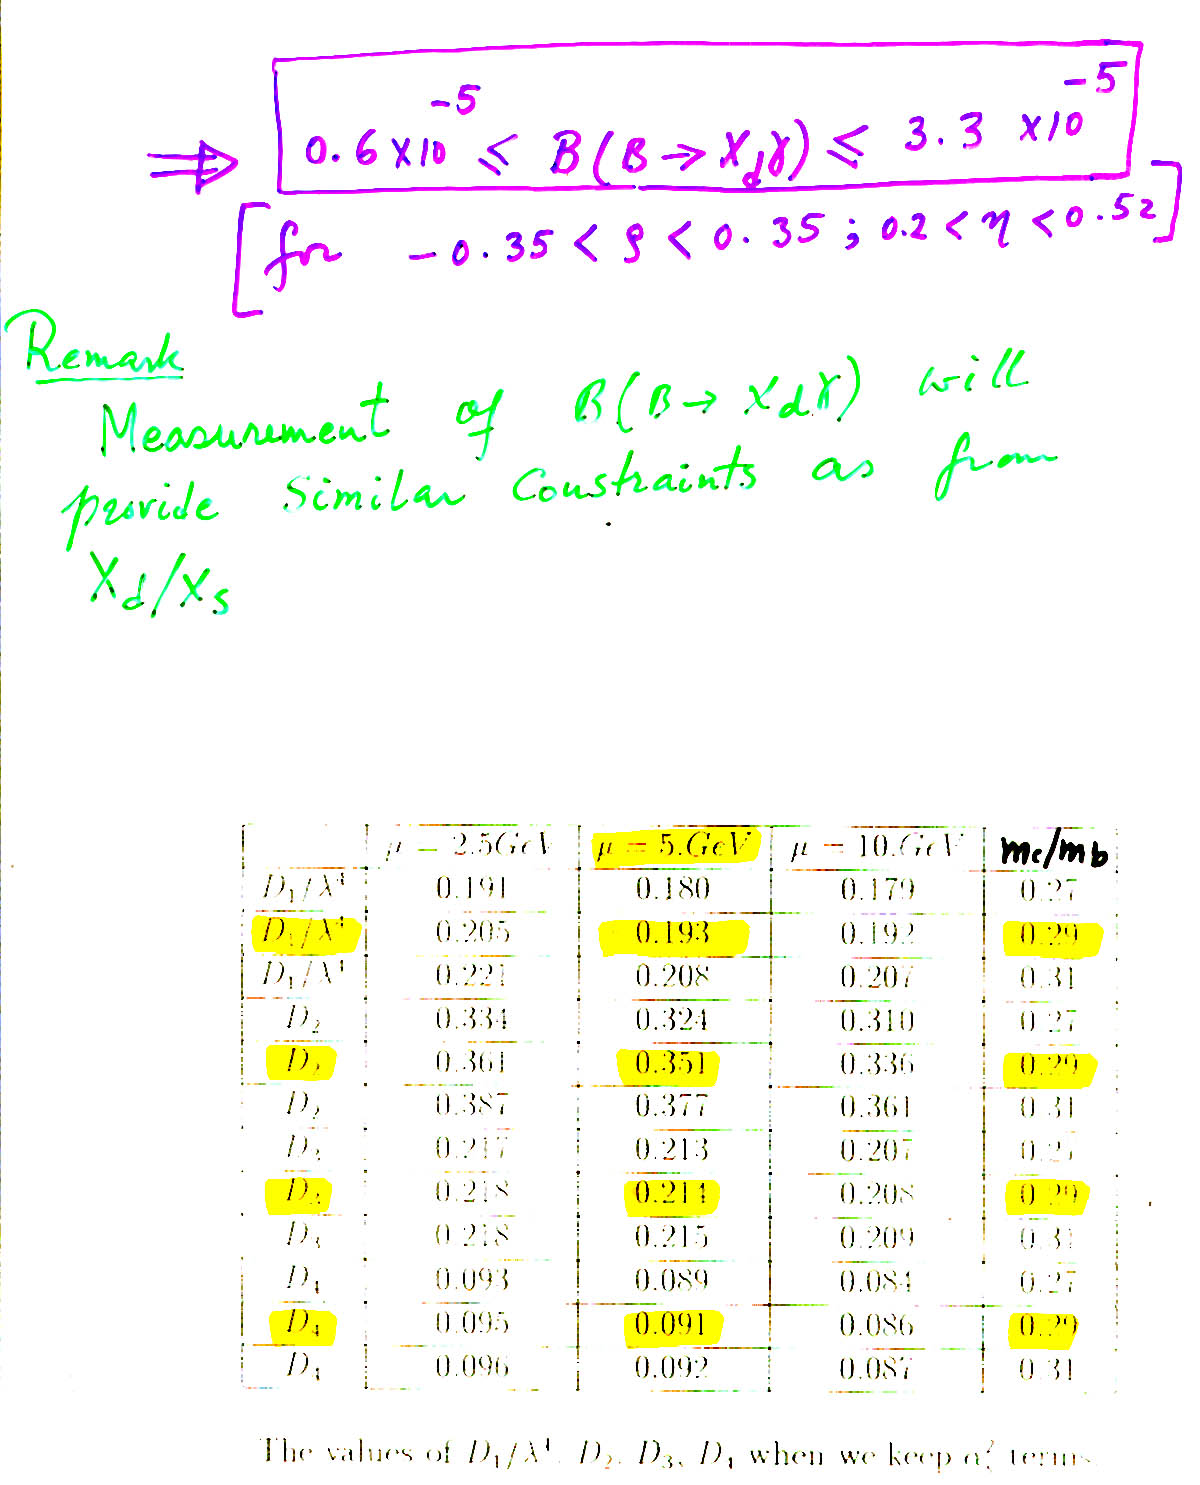 ⇒ 0.6 x 10^{-5} ≤ B(B → X_dγ) ≤ 3.3 x 10^{-5}
[for -0.35 < ρ < 0.35 ; 0.2 < η < 0.52]
Remark
Measurement of B(B → X_dγ) will
provide similar constraints as from
X_d/X_s
μ = 2.5GeV μ = 5.GeV μ = 10.GeV mc/mb
D_1/λ^4 0.191 0.180 0.179 0.27
D_1/λ^4 0.205 0.193 0.192 0.29
D_1/λ^4 0.221 0.208 0.207 0.31
D_2 0.334 0.324 0.310 0.27
D_2 0.361 0.351 0.336 0.29
D_2 0.387 0.377 0.361 0.31
D_3 0.217 0.213 0.207 0.27
D_3 0.218 0.214 0.208 0.29
D_3 0.218 0.215 0.209 0.31
D_4 0.093 0.089 0.084 0.27
D_4 0.095 0.091 0.086 0.29
D_4 0.096 0.092 0.087 0.31
The values of D_1/λ^4, D_2, D_3, D_4 when we keep α_s^2 terms.